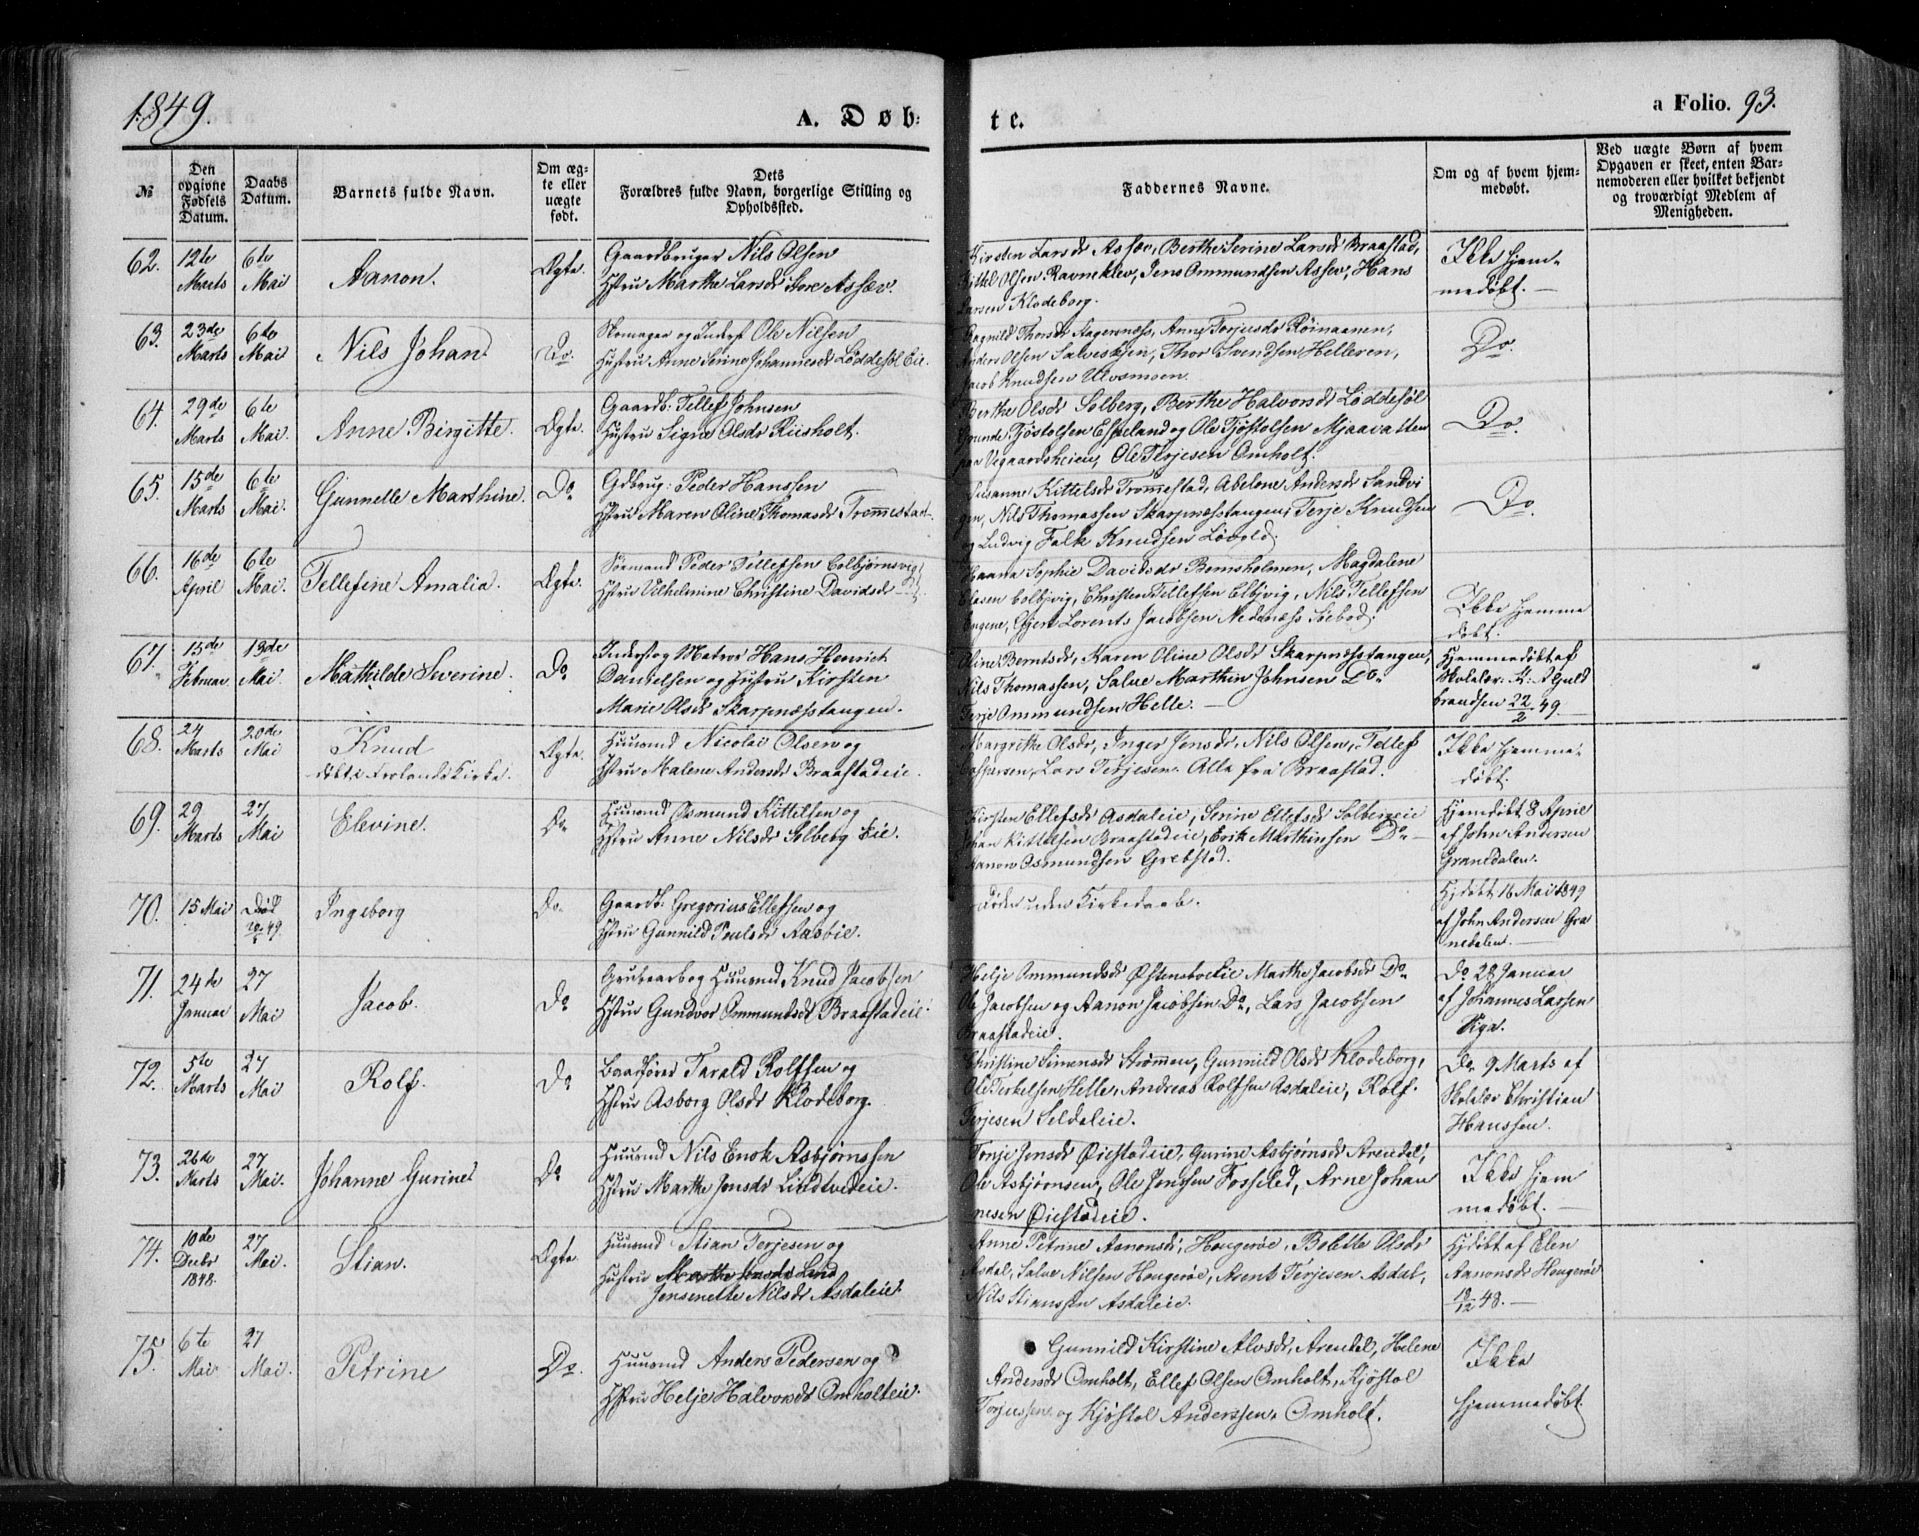 1849.
A. Døb:
te.
a Folio. 93.
№
Den opgivne Fødsels Datum.
Daabs Datum.
Barnets fulde Navn.
Om ægte eller uægte født.
Dets Forældres fulde Navn, borgerlige Stilling og Opholdssted.
Faddernes Navne.
Om og af hvem hjemmedøbt.
Ved uægte Børn af hvem Opgaven er skeet, enten Barnemoderen eller hvilket bekjendt og troværdigt Medlem af Menigheden.
62. 12te Marts 6te Mai Aanon. Ægte.
Gaardbruger Nils Olsen
Hstru Marthe Larsdr Store Assæv.
Kirsten Larsdr Assæv, Berthe Serine Larsdr Braastad,
Kittel Olsen Ravneklev, Jens Ommundsen Assev, Hans
Larsen Klodeborg.
Ikke hjemmedøbt.
63. 23de Marts 6te Mai Nils Johan. Do.
Skomager og Inderst Ole Nilsen
Hustru Anne Serine Johannesdr Løddesøl Eie.
Ragnild Thorsdr Aagersnæs, Anne Torjusdr Røinaanen,
Anders Olsen Salveskjen, Thor Svendsen Helleren,
Jacob Knudsen Ulvsmoen.
Do.
64. 29de Marts 6te Mai. Anne Birgitte. Ægte.
Gaardb: Tellef Johnsen
Hustru Signe Olsdr Riisholt.
Berthe Olsdr Solberg, Berthe Halvorsdr Løddesøl
Grunde Tjøstolsen Espeland og Ole Tjøstolsen Mjaavatten
paa Vegaardsheien, Ole Terjesen Omholt.
Do.
65. 15de Marts 6te Mai. Gunnelle Marthine. Do
Gdbrug: Peder Hanssen
Hstru Maren Oline Thomasdr Tromestad.
Susanne Kittelsdr Tromestad, Abelone Andersdr Sandvi
gen, Nils Thomassen Skarpnæsstangen, Terje Knudsen
og Ludvig Falk Knudsen Løvold.
Do.
66. 16de April 6te Mai. Tellefine Amalia. Ægte.
Sømand Peder Tellefsen Colbjørnsvig
Hstru Vilhelmine Christine Davidsdr
Haana Sophie Davidsdr Bomsholmen, Magdalene
Olasen Colbjvig, Christen Tellefsen Colbjvig, Nils Tellefsen
Engene, Gjert Lorents Jacobsen Nedenæss Søebod.
Ikke hjemme
døbt.
67. 15de Februar 13de Mai. Mathilde Swerine. Do
Inderst og Matros Hans Henrich
Danielsen og Hustru Kirsten
Marie Olsdr Skarpnæsstangen.
Oline Berntsdr, Karen Oline Olsdr Skarpnæsstangen,
Nils Thomassen, Salve Marthin Johnsen Do.
Terje Ommundsen Helle.
Hjemmedøbt af
Skolelær: A: A Guld
brandsen 22/2 49.
68. 24 Marts 20de Mai Knud
døbt i Frolands Kirke. Ægte.
Huusmd Nicolai Olsen og
Hstru Malene Andersdr Braastadeie.
Margrethe Olsdr, Inger Jensdr, Nils Olsen, Tellef
Caspersen, Lars Terjesen. Alle fra Braastad.
Ikke hjemme
døbt.
69. 29 Marts 27 Mai Elevine. Do
Huusmd Osmund Kittelsen og
Hstru Anne Nilsdr Solberg Eie.
Kirsten Ellefsdr Asdaleie, Serine Ellefsdr Solbergeie
Johan Kittelsen Braastadeie, Erik Marthinsen Do.
Aanon Osmundsen Grebstad.
Hjemdøbt 8 April
af John Andersen
Granedalen.
70. 15 Mai Død 20/5 49. Ingeborg Do.
Gaardb: Gregorius Ellefsen og
Hstru Gunnild Poulsdr Aasbie.
Døde uden Kirkedaab.
Hjdøbt 16 Mai 1849
af John Andersen Gra
nedalen.
71. 24de Januar 27 Mai Jacob. Do
Grubearb og Huusmd Knud Jacobsen
Hstru Gundvor Ommundsdr Braastadeie.
Helje Ommundsdr Østensboeie Marthe Jacobsdr Do.
Ole Jacobsen og Aanon Jacobsen Do, Lars Jacobsen
Braastadeie.
Do 28 Januar
af Johannes Larsen
Viga.
72. 5te Marts 27 Mai Rolf. Do
Baasfører Tarald Rolfsen og
Hstru Asborg Olsdr Klodeborg.
Christine Simensdr Strømmen, Gunnild Olsdr Klodeborg,
Ole Terkelsen Helle, Andreas Rolfsen Asdaleie, Rolf
Terjesen Seldaleie.
Do 9 Marts af
Skolelær Christian
Hanssen.
73. 26de Marts 27 Mai. Johanne Gurine Do
Huusmd Nils Enok Asbjørnssen
Hstru Marthe Jensdr Lindtvedeie.
Tonje Jensdr Øiestadeie, Gurine Asbjørnsdr Arendal,
Ole Asbjørnsen, Ole Jenssen Fosseled, Arne Johan
nesen Øiestadeie.
Ikke hjem
medøbt.
74. 10de Decbr 1848. 27 Mai. Stian. Ægte
Huusmd Stian Terjesen og
Hustru Marthe Jensdr Lind
Jensenette Nilsdr Asdaleie.
Anne Petrine Aanonsdr, Hougerøe, Bolette Olsdr
Asdal, Salve Nilsen Hougerøe, Arent Terjesen Asdal,
Nils Stianssen Asdaleie.
Hjdøbt af Elen
Aanonsdr Hougerøe
12/12 48.
75. 6te Mai 27 Mai. Petrine Do.
Huusmd Anders Pedersen og
Hstru Helje Halvorsdr Omholteie.
Gunnild Kirstine Alvsdr, Arendal, Helene
Andersdr Omholt, Ellef Olsen Omholt, Kjøstol
Torjussen og Kjøstol Anderssen, Omholt.
Ikke
hjemmedøbt